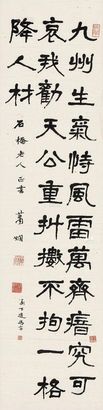 九州生氣恃風雷萬齊瘖究可
哀我勸天公重抖擻不拘一格
降人材
石橋老人正書 蕭嫻